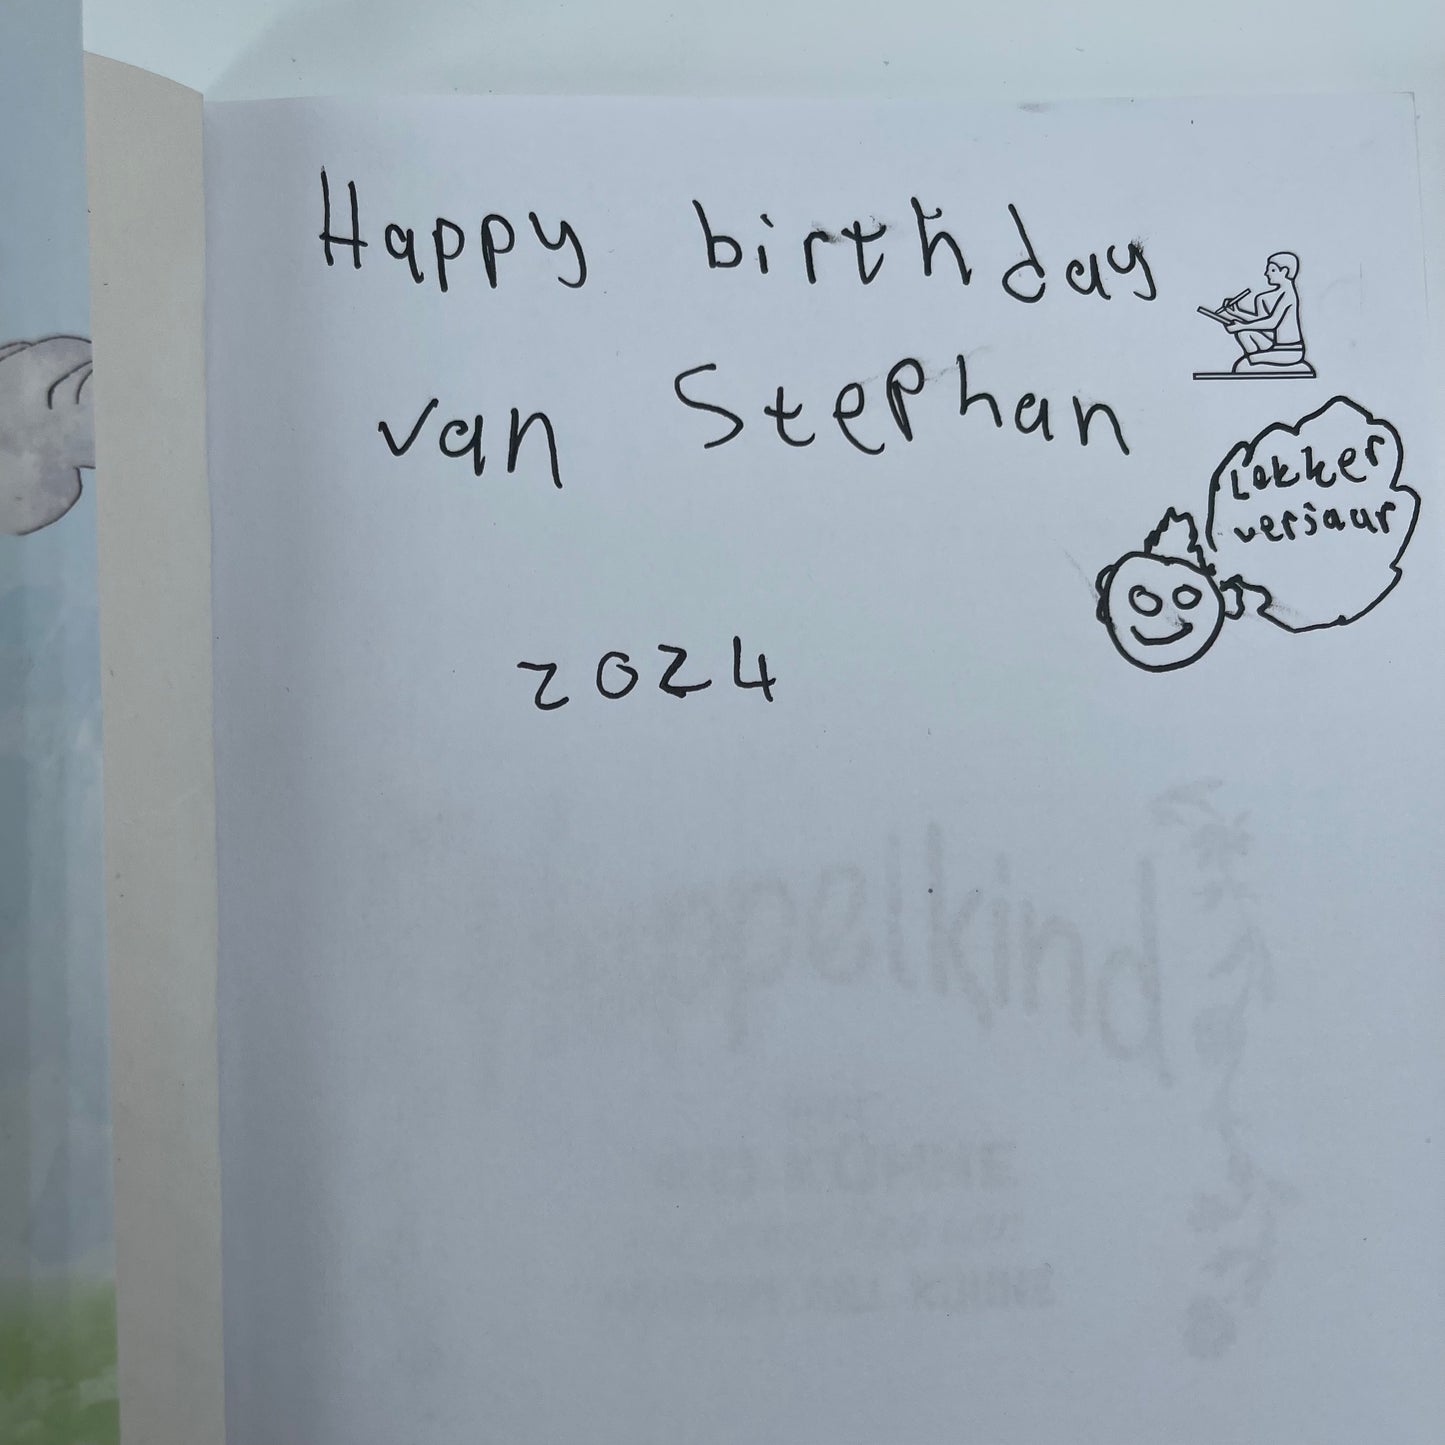 Happy birthday
van Stephan
Lekker
verjaar
2024
pelkind